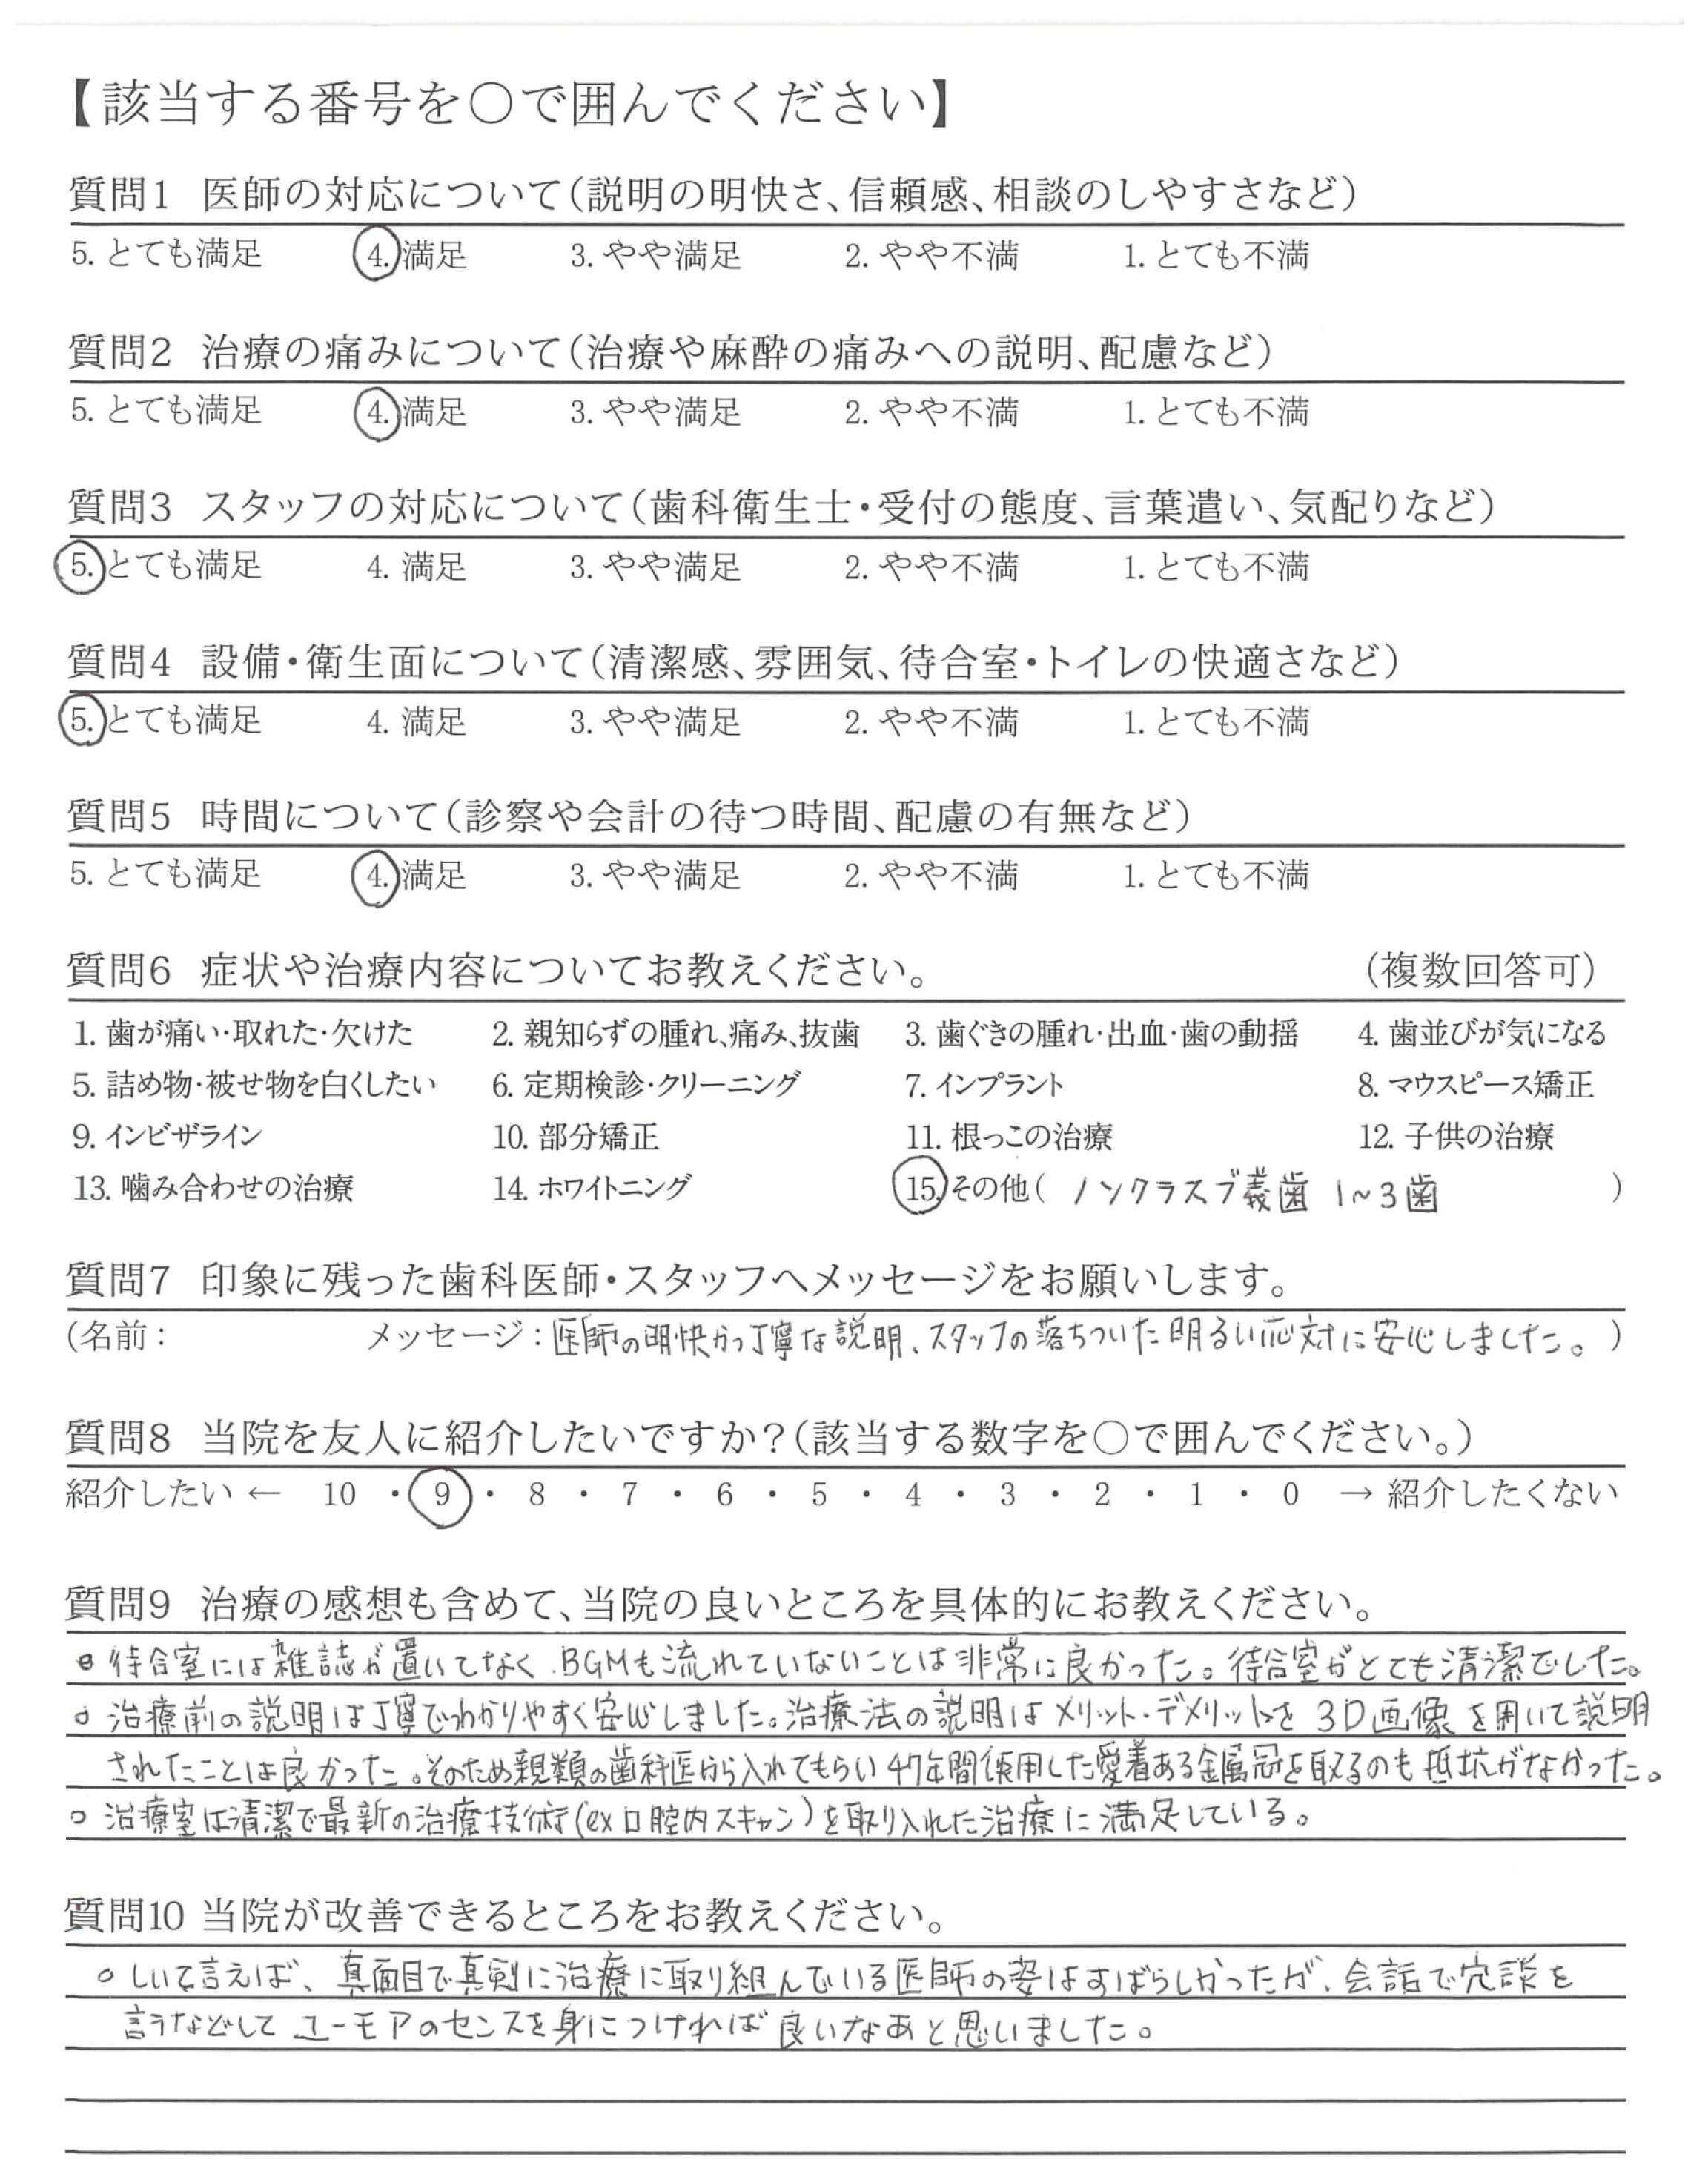 【該当する番号を○で囲んでください】
質問1 医師の対応について(説明の明快さ、信頼感、相談のしやすさなど)
5. とても満足 4. 満足 3. やや満足 2. やや不満 1. とても不満
質問2 治療の痛みについて(治療や麻酔の痛みへの説明、配慮など)
5. とても満足 4. 満足 3. やや満足 2. やや不満 1. とても不満
質問3 スタッフの対応について(歯科衛生士・受付の態度、言葉遣い、気配りなど)
5. とても満足 4. 満足 3. やや満足 2. やや不満 1. とても不満
質問4 設備・衛生面について(清潔感、雰囲気、待合室・トイレの快適さなど)
5. とても満足 4. 満足 3. やや満足 2. やや不満 1. とても不満
質問5 時間について(診察や会計の待つ時間、配慮の有無など)
5. とても満足 4. 満足 3. やや満足 2. やや不満 1. とても不満
質問6 症状や治療内容についてお教えください。 (複数回答可)
1. 歯が痛い・取れた・欠けた 2. 親知らずの腫れ、痛み、抜歯 3. 歯ぐきの腫れ・出血・歯の動揺 4. 歯並びが気になる
5. 詰め物・被せ物を白くしたい 6. 定期検診・クリーニング 7. インプラント 8. マウスピース矯正
9. インビザライン 10. 部分矯正 11. 根っこの治療 12. 子供の治療
13. 噛み合わせの治療 14. ホワイトニング 15. その他( ノンクラスブ義歯 1~3歯 )
質問7 印象に残った歯科医師・スタッフへメッセージをお願いします。
(名前: メッセージ:医師の明快かつ丁寧な説明、スタッフの落ちついた明るい応対に安心しました。)
質問8 当院を友人に紹介したいですか?(該当する数字を○で囲んでください。)
紹介したい ← 10 ・ 9 ・ 8 ・ 7 ・ 6 ・ 5 ・ 4 ・ 3 ・ 2 ・ 1 ・ 0 → 紹介したくない
質問9 治療の感想も含めて、当院の良いところを具体的にお教えください。
○ 待合室には雑誌が置いてなく、BGMも流れていないことは非常に良かった。待合室がとても清潔でした。
○ 治療前の説明は丁寧でわかりやすく安心しました。治療法の説明はメリット・デメリットを3D画像を用いて説明
されたことは良かった。そのため親類の歯科医から入れてもらい47年間使用した愛着ある金属冠を取るのも抵抗がなかった。
○ 治療室は清潔で最新の治療技術(ex口腔内スキャン)を取り入れた治療に満足している。
質問10 当院が改善できるところをお教えください。
○ しいて言えば、真面目で真剣に治療に取り組んでいる医師の姿はすばらしかったが、会話で冗談を
言うなどして ユーモアのセンスを身につければ良いなあと思いました。